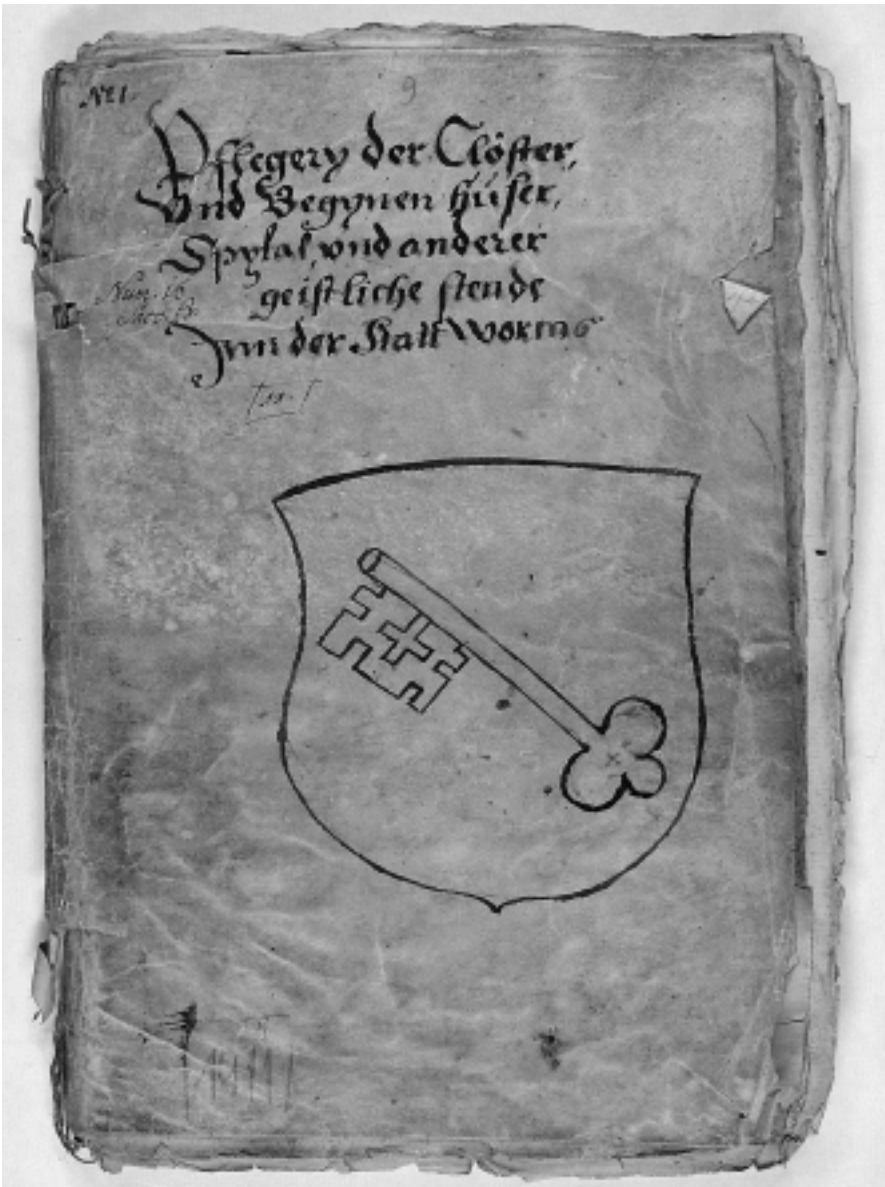 No 1.
9
Pflegery der Clöster,
Vnd Begynen hüser,
Spytal, vnd anderer
geistliche stende
Jnn der Statt Worms
Num. 16